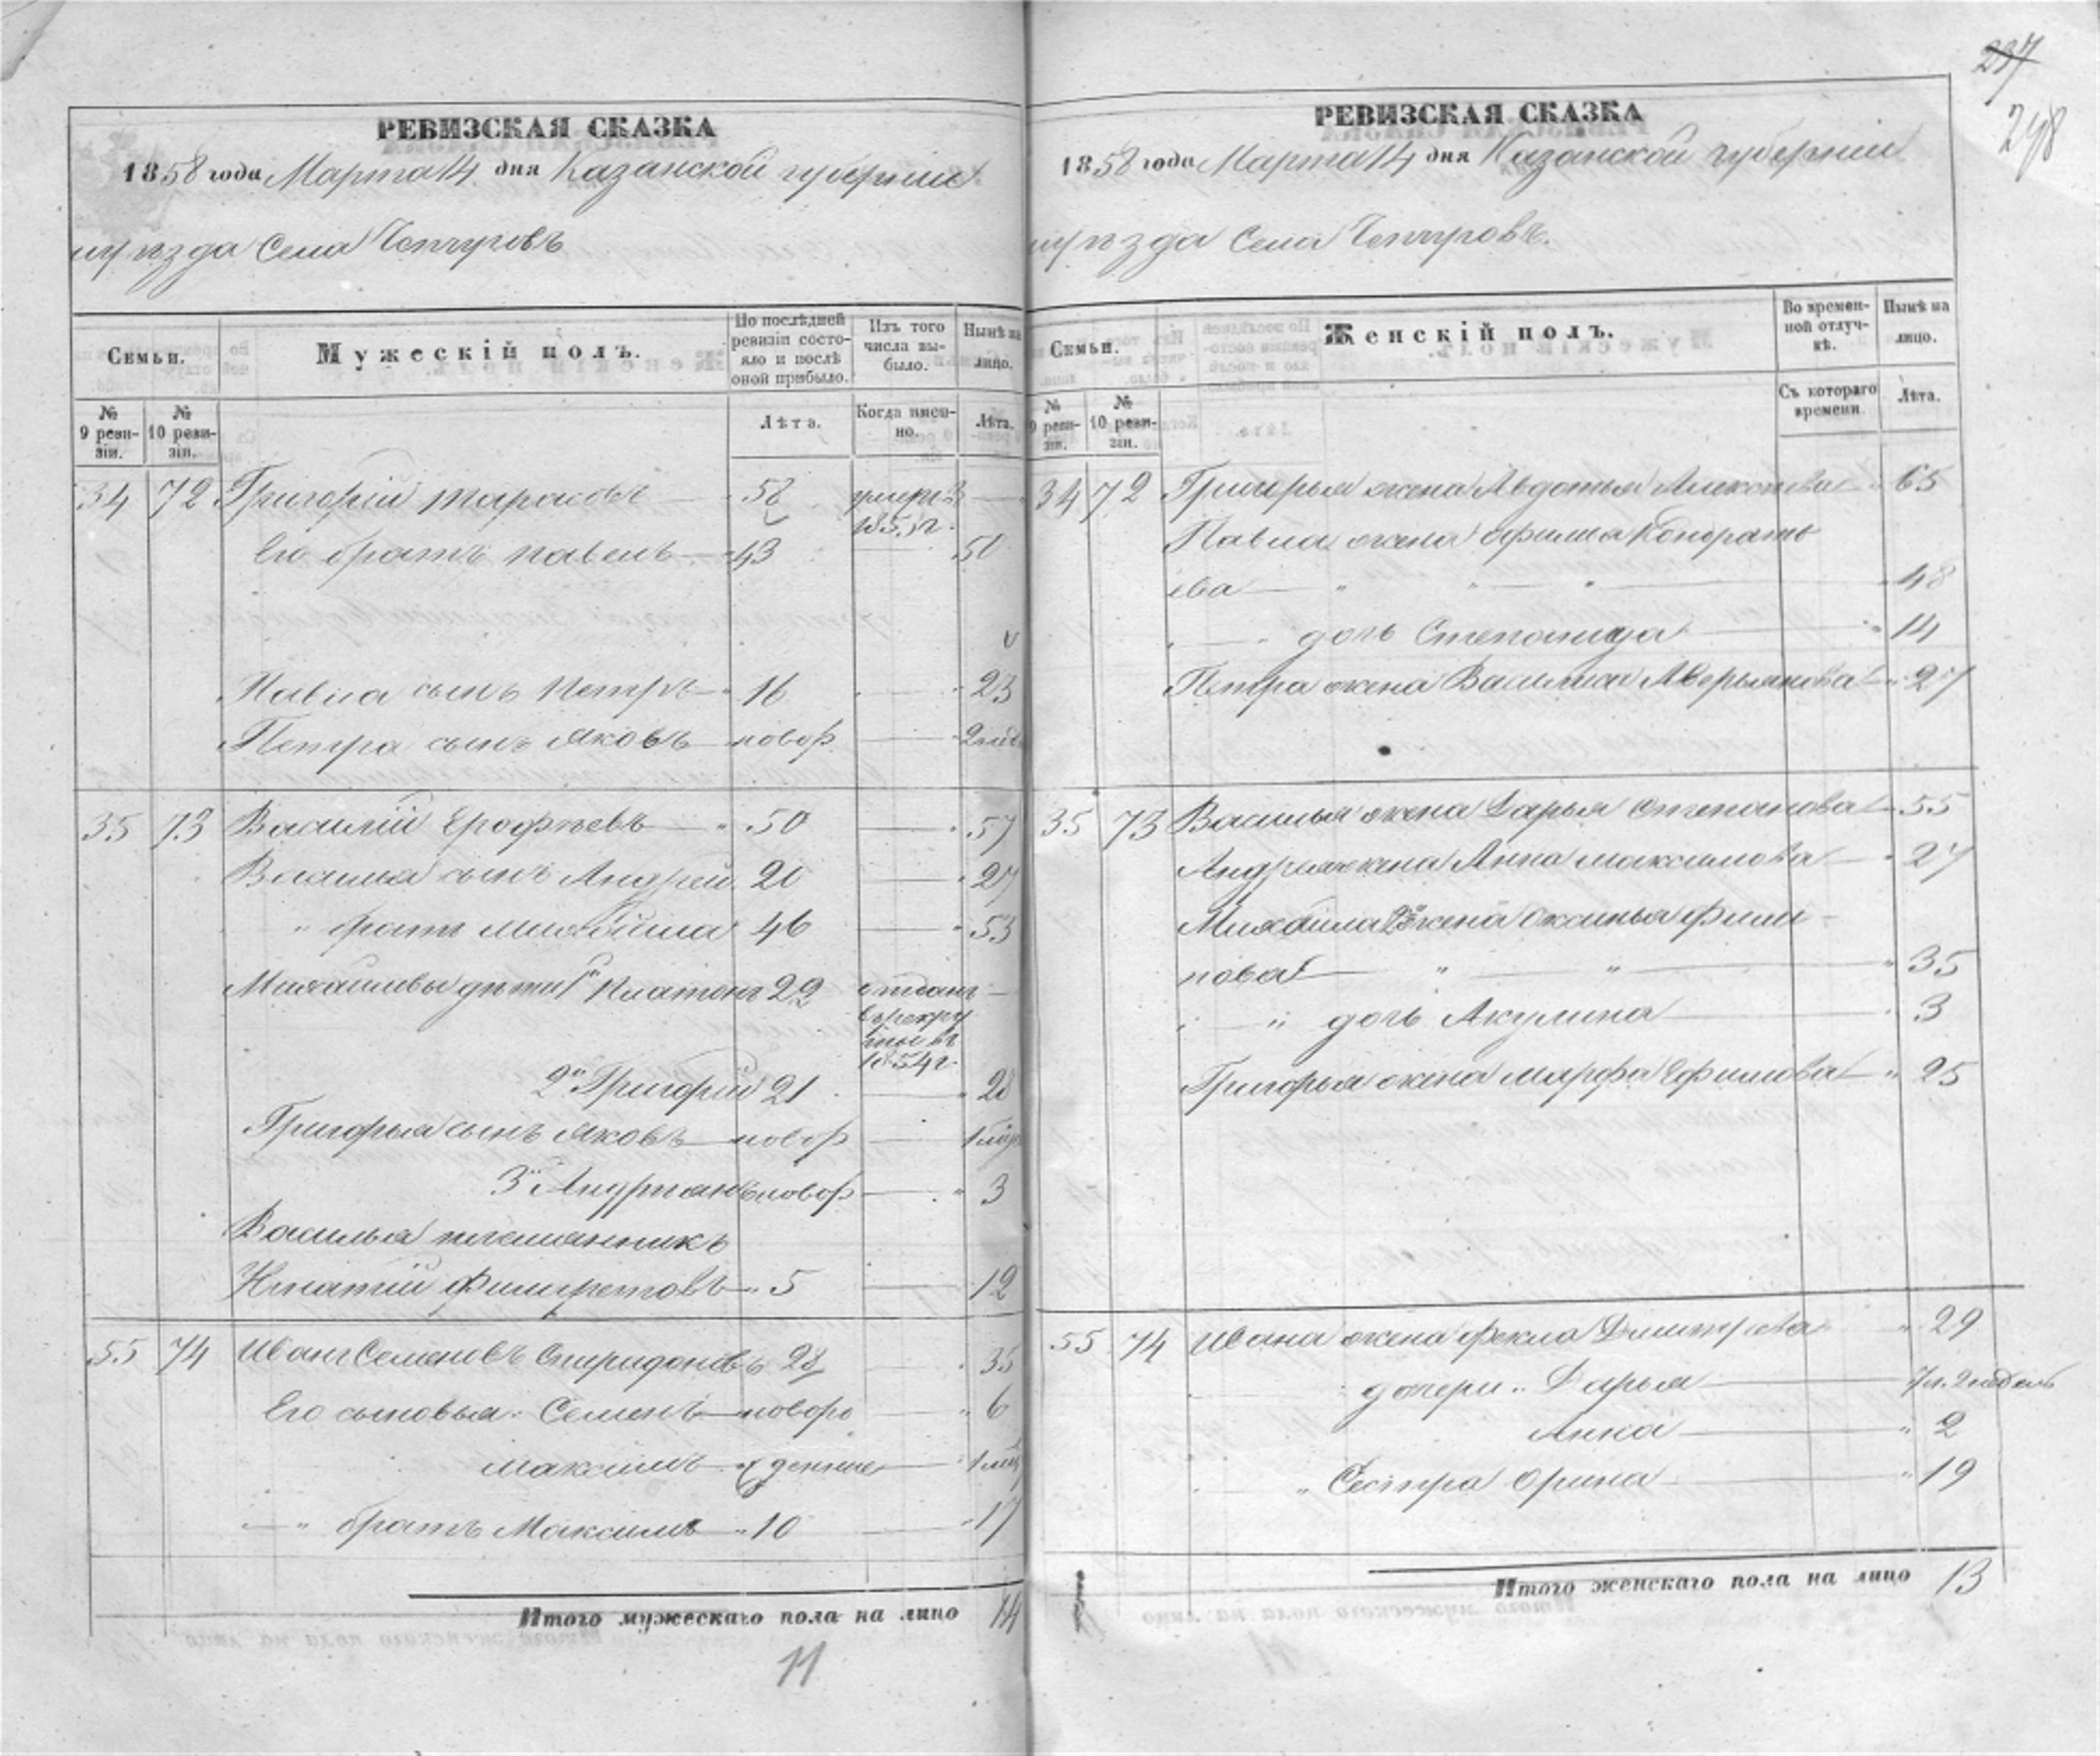 РЕВИЗСКАЯ СКАЗКА
1858 года Марта 14 дня Казанской губерніи
уѣзда Села Чепчуговъ
Семьи.
Мужескій полъ.
По послѣдней ревизіи состояло и послѣ оной прибыло.
Изъ того числа выбыло.
Нынѣ на лицо.
№ 9 ревизіи.
№ 10 ревизіи.
Лѣта.
Когда именно.
Лѣта.
34 72 Григорій Тарасовъ 58 умеръ
Его братъ Павелъ 43 50
Павла сынъ Петръ 16 23
Петра сынъ Яковъ новор
35 73 Василій Ерофѣевъ 50 57
Василья сынъ Андрей 20 27
" братъ Михайла 46 53
Михайловы дѣти 1й Платонъ 22 отданъ
въ рекру
ты въ
1854 г.
2й Григорій 21 28
Григорья сынъ Яковъ новор
3й Андріанъ новор 3
Василья племянникъ
Игнатій Филаретовъ 5 12
55 74 Иванъ Семеновъ Спиридоновъ 28 35
Его сыновья: Семенъ новоро 6
Максимъ
" братъ Максимъ 10 17
Итого мужескаго пола на лицо 14
11
237
248
РЕВИЗСКАЯ СКАЗКА
1858 года Марта 14 дня Казанской губерніи
уѣзда Села Чепчуговъ.
Семьи.
Женскій полъ.
Во временной отлучкѣ.
Нынѣ на лицо.
№ 9 ревизіи.
№ 10 ревизіи.
Съ котораго времени.
Лѣта.
34 72 Григорья жена Авдотья 65
Павла жена Афимья Кондрать
ева 48
дочь Степанида 14
Петра жена Василиса Аверьянова 27
35 73 Василья жена Дарья Степанова 55
Андрея жена Анна Максимова 27
Михайла 2я жена Оксинья Фили
пова 35
" дочь Акулина 3
Григорья жена Марфа Ефимова 25
55 74 Ивана жена Фекла Дмитрева 29
дочери: Дарья 7 л. 2 недель
Анна 2
" Сестра Орина 19
Итого женскаго пола на лицо 13